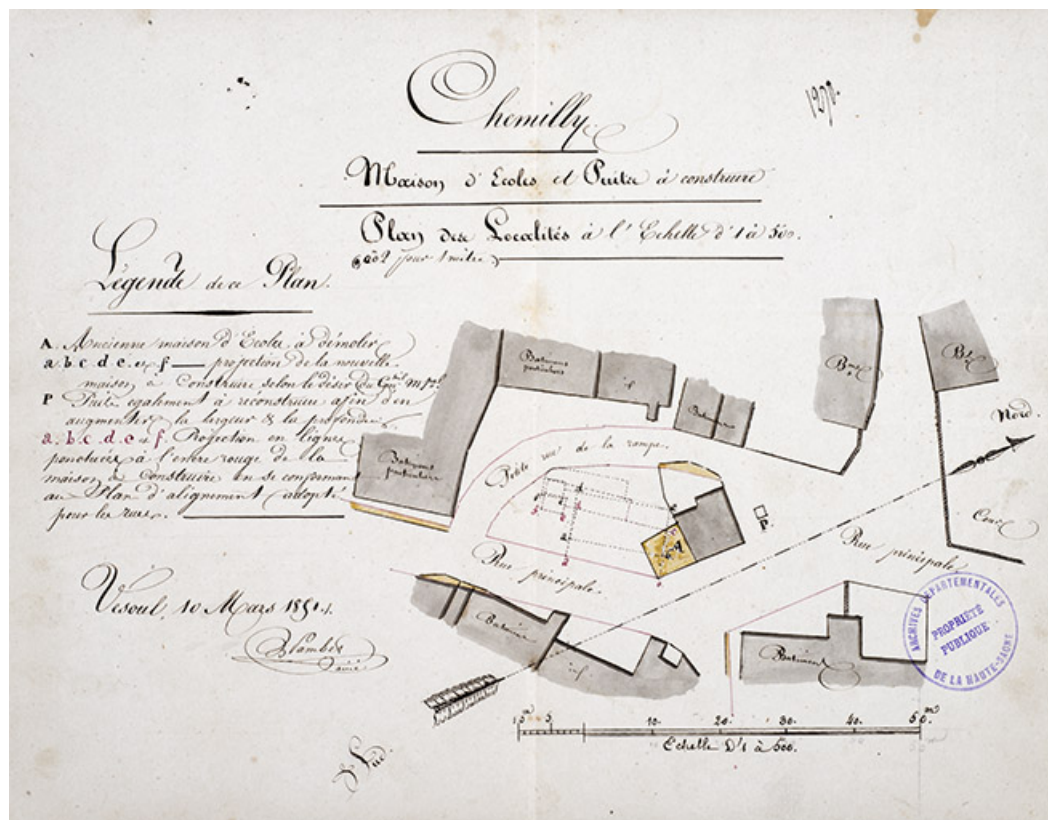 Chemilly
1270.
Maison d'Ecoles et Puits à construire
Plan des Localités à l'Echelle d'1 à 500.
(002 pour 1 mètre)
Légende de ce Plan.
A. Ancienne maison d'Ecole à démolir
a. b. c. d. e. et f — projection de la nouvelle
maison à Construire selon le désir du
P Puits également à reconstruire afin d'en
augmenter la largeur & la profondeur.
a. b. c. d. e et f. Projection en lignes
ponctuées à l'encre rouge de la
maison à Construire en se conformant
au Plan d'alignement adopté
pour les rues.
Vesoul, 10 Mars 1851.
Bâtimens
particuliers
id
Bâtimens
particuliers
Petite rue de la rampe.
Rue principale.
Rue principale.
P.
Nord.
Cour
Bâtiment
id
Bâtiment
Sud
ARCHIVES DÉPARTEMENTALES
PROPRIÉTÉ
PUBLIQUE
DE LA HAUTE-SAONE
10 5. 10. 20. 30. 40. 50.
Echelle D'1 à 500.